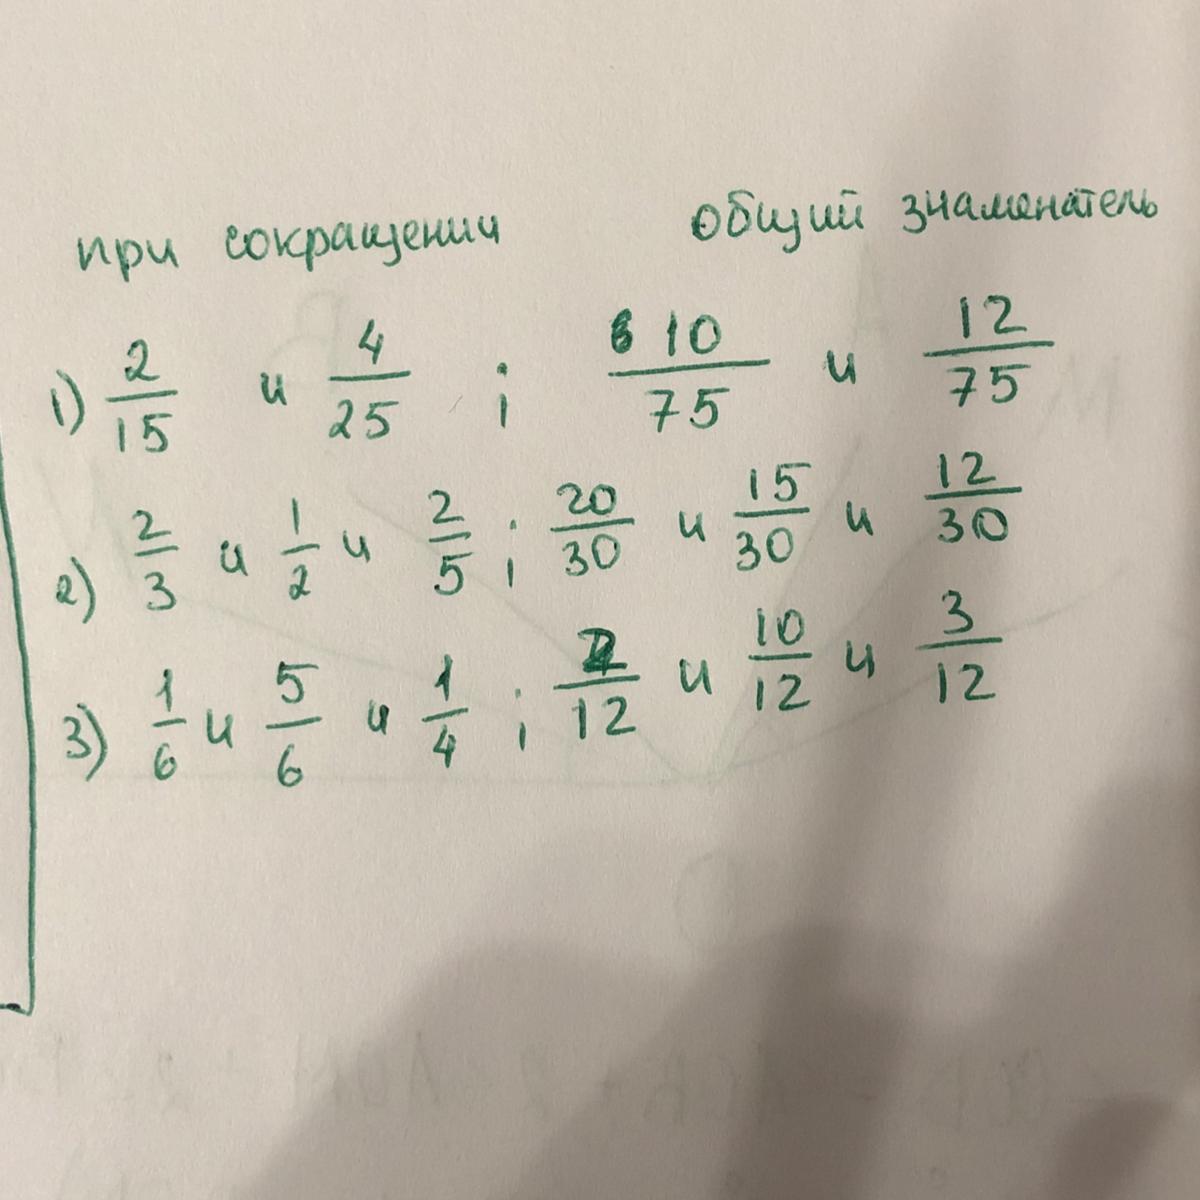 при сокращении общий знаменатель
1) 2/15 и 4/25 ; 10/75 и 12/75
2) 2/3 и 1/2 и 2/5 ; 20/30 и 15/30 и 12/30
3) 1/6 и 5/6 и 1/4 ; 2/12 и 10/12 и 3/12